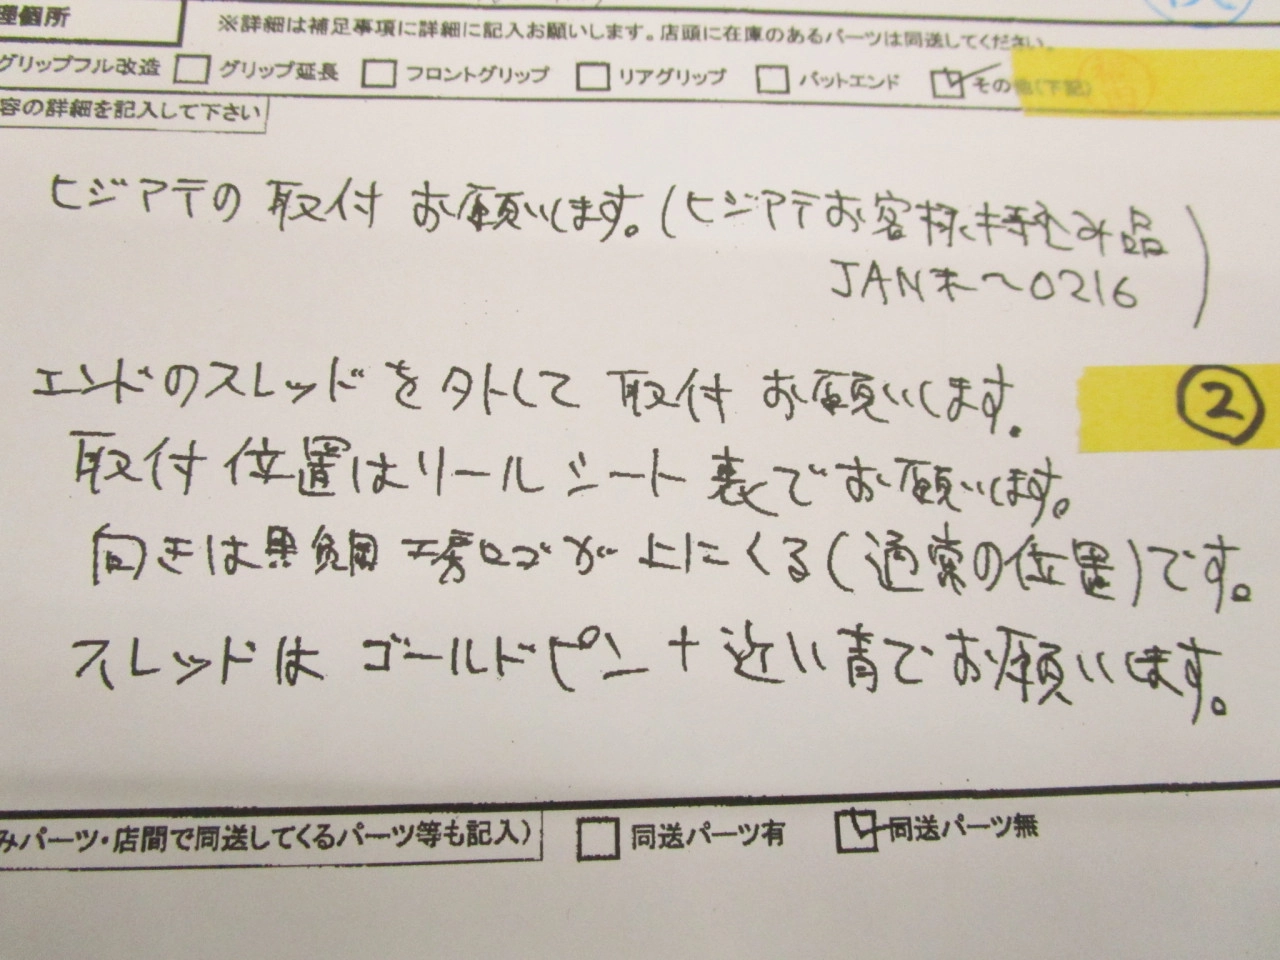 理個所
※詳細は補足事項に詳細に記入お願いします。店頭に在庫のあるパーツは同送してください。
グリップフル改造 □ グリップ延長 □ フロントグリップ □ リアグリップ □ バットエンド ☑ その他(下記)
容の詳細を記入して下さい
ヒジアテの取付お願いします。(ヒジアテお客様持込み品
JAN末~0216)
エンドのスレッドを外して取付お願いします。
②
取付位置はリールシート裏でお願いします。
向きは黒鯛工房ロゴが上にくる(通常の位置)です。
スレッドはゴールドピン+近い青でお願いします。
みパーツ・店間で同送してくるパーツ等も記入) □ 同送パーツ有 ☑ 同送パーツ無